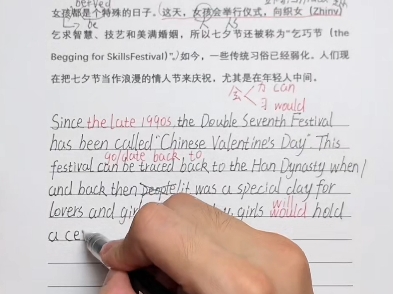 女孩都是个特殊的日子。这天，女孩会举行仪式，向织女 (Zhinv)
be
乞求智慧、技艺和美满婚姻，所以七夕节还被称为“乞巧节 (the
Begging for SkillsFestival)”。如今，一些传统习俗已经弱化。人们现
在把七夕节当作浪漫的情人节来庆祝，尤其是在年轻人中间。
会 can
would
Since the late 1990s, the Double Seventh Festival
has been called "Chinese Valentine's Day". This
go/date back to
festival can be traced back to the Han Dynasty when
and back then it was a special day for
lovers and girls would hold
a ce